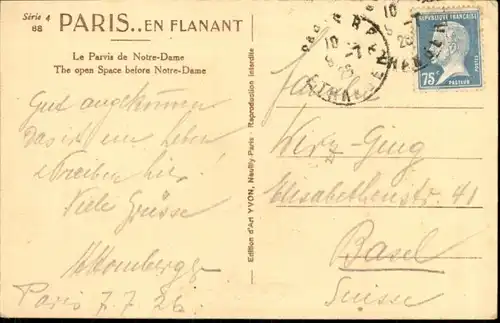 Série 4
88
PARIS.. EN FLANANT
Le Parvis de Notre-Dame
The open Space before Notre-Dame
Gut angekommen
Das ist ein Leben
& Treiben hier!
Viele Grüsse
Paris 7.7.26.
Edition d'Art YVON, Neuilly-Paris - Reproduction interdite
REPUBLIQUE FRANÇAISE
75c
PASTEUR
POSTES
Wirz-Ging
Elisabethenstr. 41
Basel
Suisse